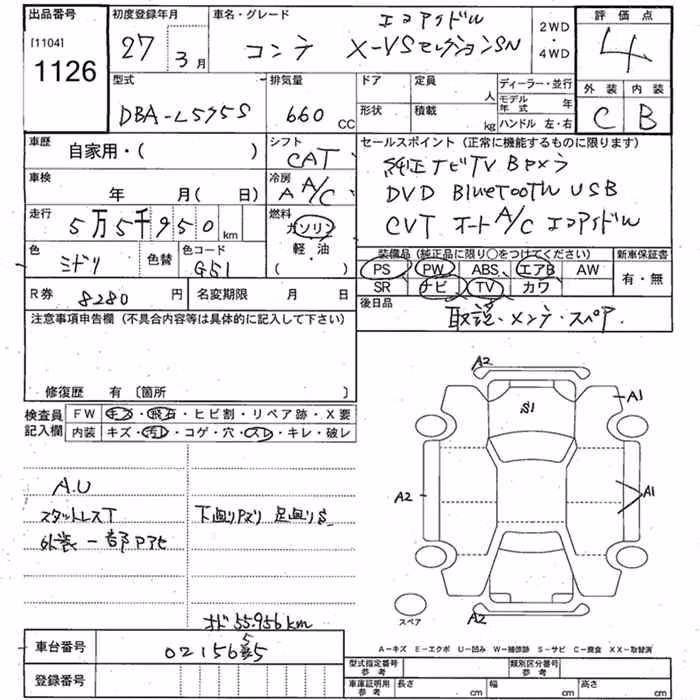 出品番号 初度登録年月 車名・グレード エコアイドル 2WD・4WD 評価点
[1104] 27 3月 コンテ X-VSセレクションSN 4
1126
型式 排気量 ドア 定員 人 ディーラー・並行 外装 内装
DBA-L575S 660 CC 形状 積載 kg モデル年式 年 C B
ハンドル 左・右
車歴 自家用・( ) シフト CAT セールスポイント（正常に機能するものに限ります）
純正ナビTV Bカメラ
車検 年 月( 日) 冷房 A A/C DVD Bluetooth USB
走行 5万5千950km 燃料 ガソリン・軽・油 ( ) CVT オートA/C エコアイドル
色 ミドリ 色替 色コード G51
装備品（純正品に限り○をつけてください） 新車保証書
PS PW ABS エアB AW 有・無
SR ナビ TV カワ
R券 8280円 名変期限 月 日 後日品
取説・メンテ・スペア.
注意事項申告欄（不具合内容等は具体的に記入して下さい）
修復歴 有〔箇所 〕
検査員記入欄 FW キズ・飛石・ヒビ割・リペア跡・X要
内装 キズ・汚レ・コゲ・穴・スレ・キレ・破レ
A2
S1
A1
A2
A1
A2
A.U
スタットレスT 下廻りPズリ 足廻りS
外装一部Pアセ
スペア
オド 55.956km
A－キズ E－エクボ U－凹み W－補修跡 S－サビ C－腐食 XX－取替済
車台番号
登録番号
型式指定番号 参考 類別区分番号 参考
車庫証明用 参考 長さ cm 幅 cm 高さ cm